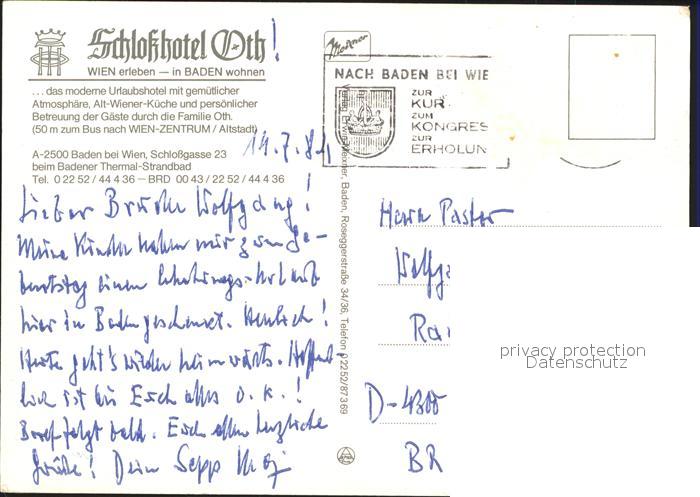 Schloßhotel Oth!
WIEN erleben — in BADEN wohnen
. . . das moderne Urlaubshotel mit gemütlicher
Atmosphäre, Alt-Wiener-Küche und persönlicher
Betreuung der Gäste durch die Familie Oth.
(50 m zum Bus nach WIEN-ZENTRUM / Altstadt)
A-2500 Baden bei Wien, Schloßgasse 23
beim Badener Thermal-Strandbad
Tel. 0 22 52 / 44 4 36 — BRD 00 43 / 22 52 / 44 4 36
14.7.84
Lieber Bruder Wolfgang!
Meine Kinder haben mir zum Ge-
burtstag einen Erholungs-Urlaub
hier in Baden geschenkt. Herrlich!
Heute geht's wieder heimwärts. Hoffent-
lich ist bei Euch alles o.k.!
Brief folgt bald. Euch allen herzliche
Grüße! Dein Sepp
Verlag Erwin Mexner, Baden, Roseggerstraße 34/36, Telefon 02252/87369
Mexner
NACH BADEN BEI WIE
ZUR
KUR
ZUM
KONGRES
ZUR
ERHOLUN
Herrn Pastor
Wolfga
D-4300
BR
privacy protection
Datenschutz